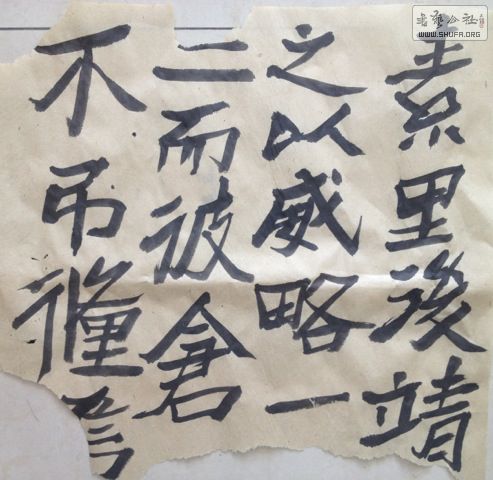 書藝公社
WWW.SHUFA.ORG
素里後靖
之以威略一
二而彼倉
不吊